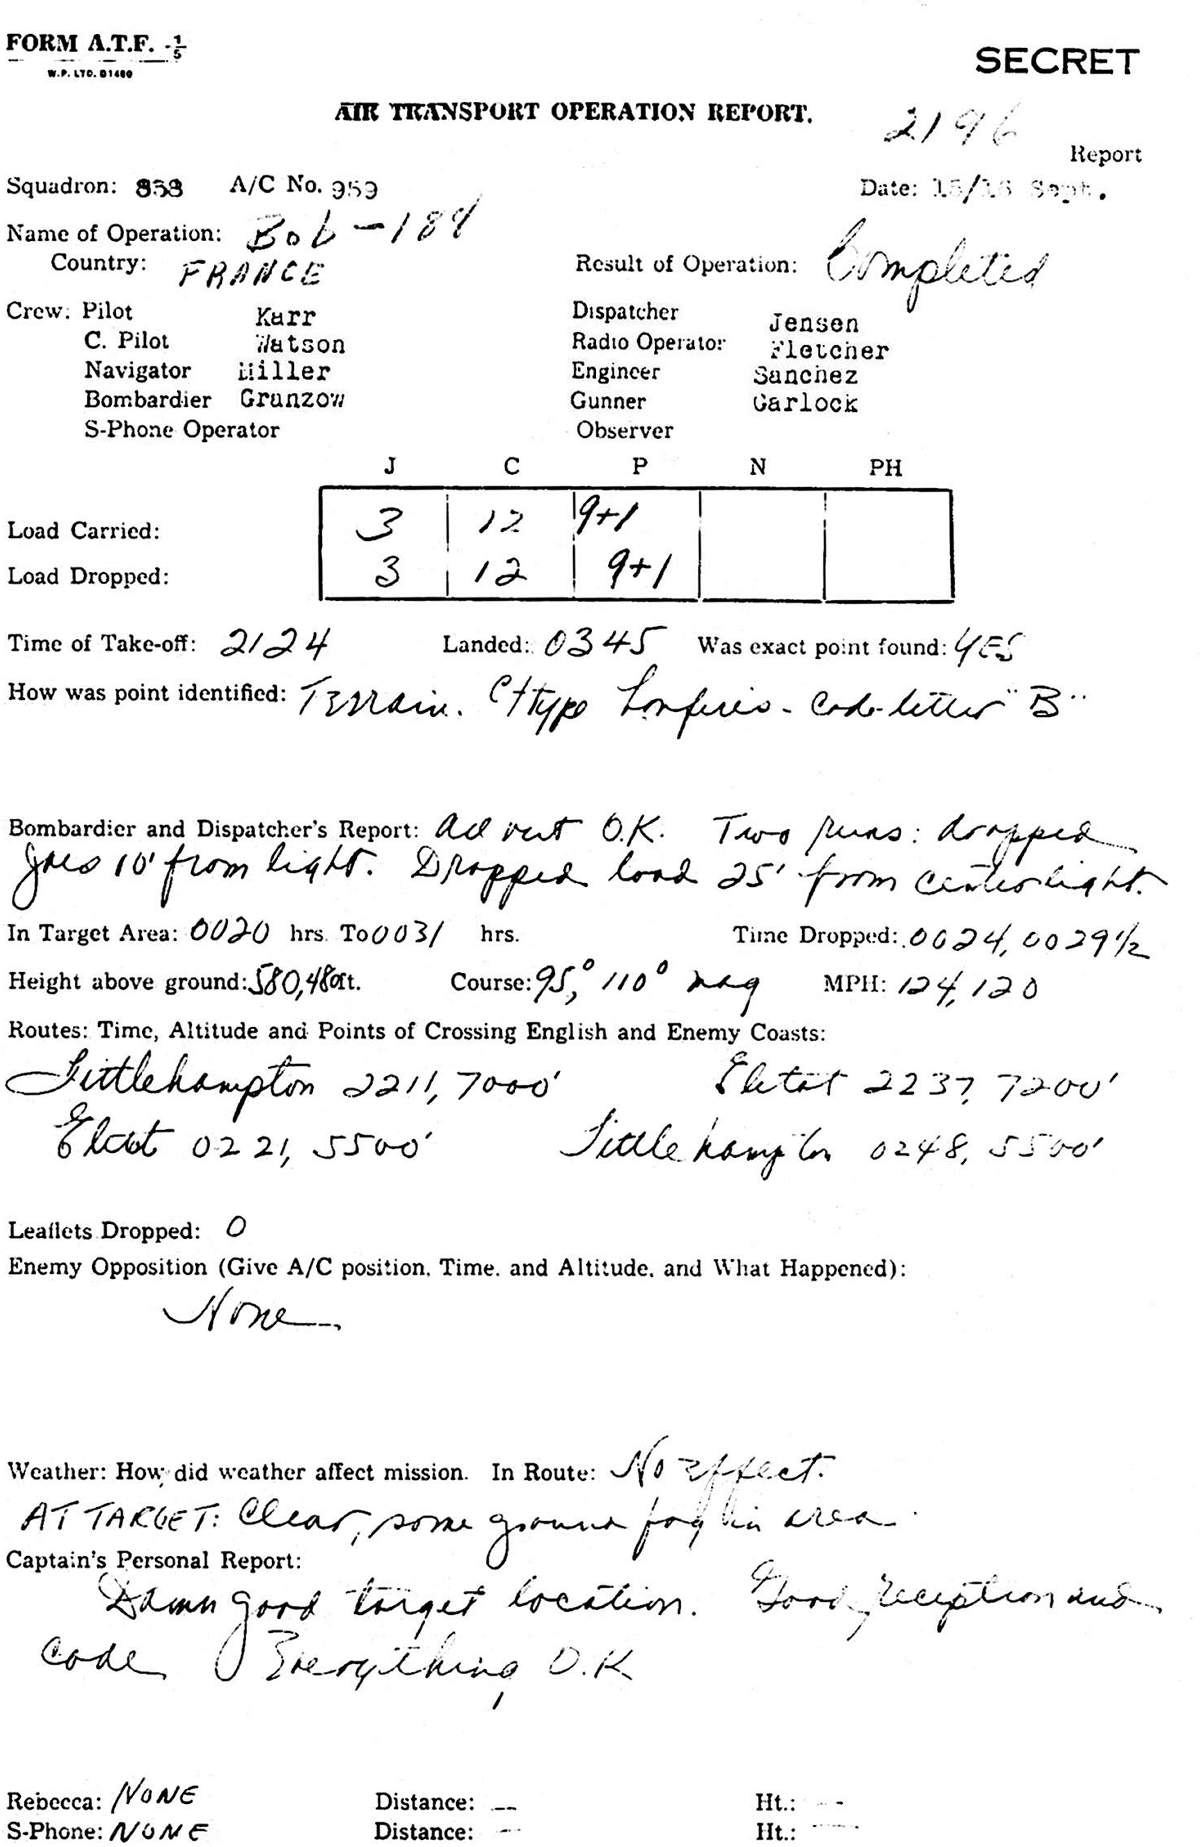 FORM A.T.F. -1/5
W.P. LTD. D1480
SECRET
AIR TRANSPORT OPERATION REPORT.
2196
Report
Squadron: 858 A/C No. 959 Date: 15/16 Sept.
Name of Operation: Bob-184
Country: FRANCE Result of Operation: Completed
Crew: Pilot Karr Dispatcher Jensen
C. Pilot Watson Radio Operator Fletcher
Navigator Miller Engineer Sanchez
Bombardier Grunzow Gunner Garlock
S-Phone Operator Observer
J C P N PH
Load Carried: 3 12 9+1
Load Dropped: 3 12 9+1
Time of Take-off: 2124 Landed: 0345 Was exact point found: YES
How was point identified: Terrain. C type bonfires - Code letter "B"
Bombardier and Dispatcher's Report: All out O.K. Two runs: dropped
Joes 10' from light. Dropped load 25' from center light.
In Target Area: 0020 hrs. To 0031 hrs. Time Dropped: 0024, 0029 1/2
Height above ground: 580, 480 ft. Course: 95°, 110° mag MPH: 124, 120
Routes: Time, Altitude and Points of Crossing English and Enemy Coasts:
Littlehampton 2211, 7000' Etetat 2237, 7200'
0221, 5500' Littlehampton 0248, 5500'
Leaflets Dropped: 0
Enemy Opposition (Give A/C position, Time, and Altitude, and What Happened):
None
Weather: How did weather affect mission. In Route: No effect.
AT TARGET: Clear, some ground fog in area.
Captain's Personal Report:
Damn good target location. Good reception and
code. Everything O.K
Rebecca: NONE Distance: -- Ht.: --
S-Phone: NONE Distance: -- Ht.: --